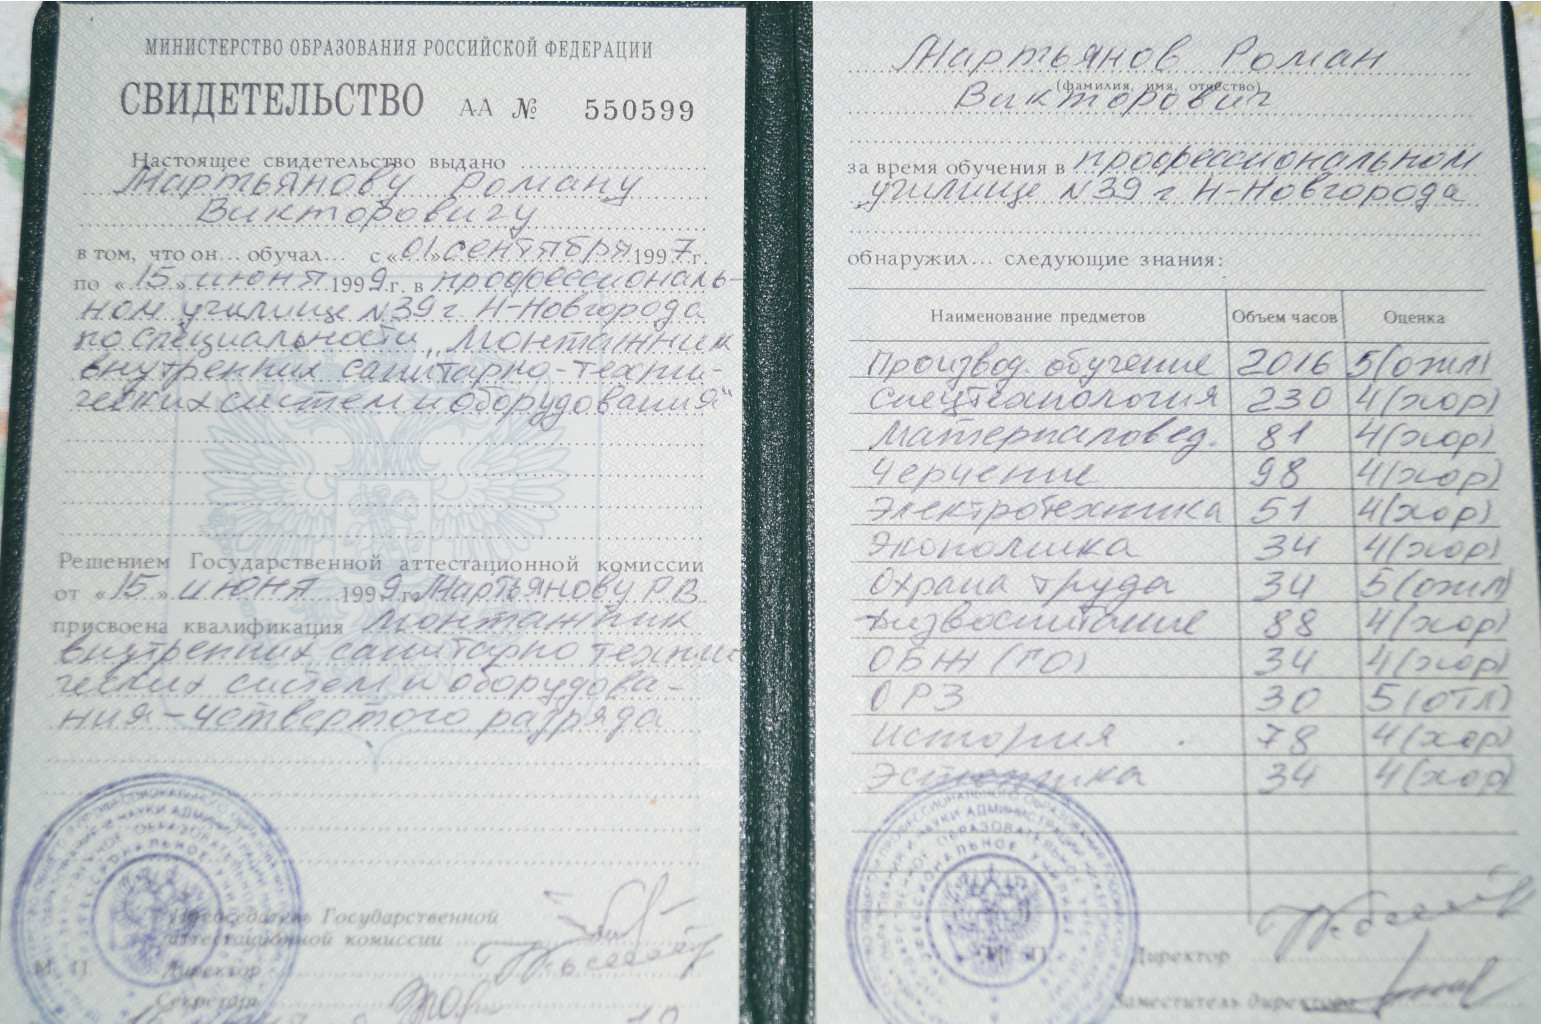 МИНИСТЕРСТВО ОБРАЗОВАНИЯ РОССИЙСКОЙ ФЕДЕРАЦИИ
СВИДЕТЕЛЬСТВО АА № 550599
Настоящее свидетельство выдано
Мартьянову Роману
Викторовичу
в том, что он... обучал... с «01» сентября 1997 г.
по «15» июня 1999 г. в профессиональ-
ном училище №39 г. Н-Новгорода
по специальности „Монтажник
внутренних санитарно-техни-
ческих систем и оборудования"
Решением Государственной аттестационной комиссии
от «15» июня 1999 г. Мартьянову Р В
присвоена квалификация Монтажник
внутренних санитарно техни
ческих систем и оборудова-
ния - четвертого разряда
Председатель Государственной
аттестационной комиссии
М. П. Директор
Секретарь
Мартьянов Роман
(фамилия, имя, отчество)
Викторович
за время обучения в профессиональном
училище №39 г Н-Новгорода
обнаружил... следующие знания:
Наименование предметов Объем часов Оценка
Производ. обучение 2016 5(отл)
спецтехнология 230 4(хор)
Материаловед. 81 4(хор)
Черчение 98 4(хор)
Электротехника 51 4(хор)
Экономика 34 4(хор)
Охрана труда 34 5(отл)
Физвоспитание 88 4(хор)
ОБЖ (ГО) 34 4(хор)
ОРЗ 30 5(отл)
История 78 4(хор)
Эстетика 34 4(хор)
М. П. Директор
Заместитель директора